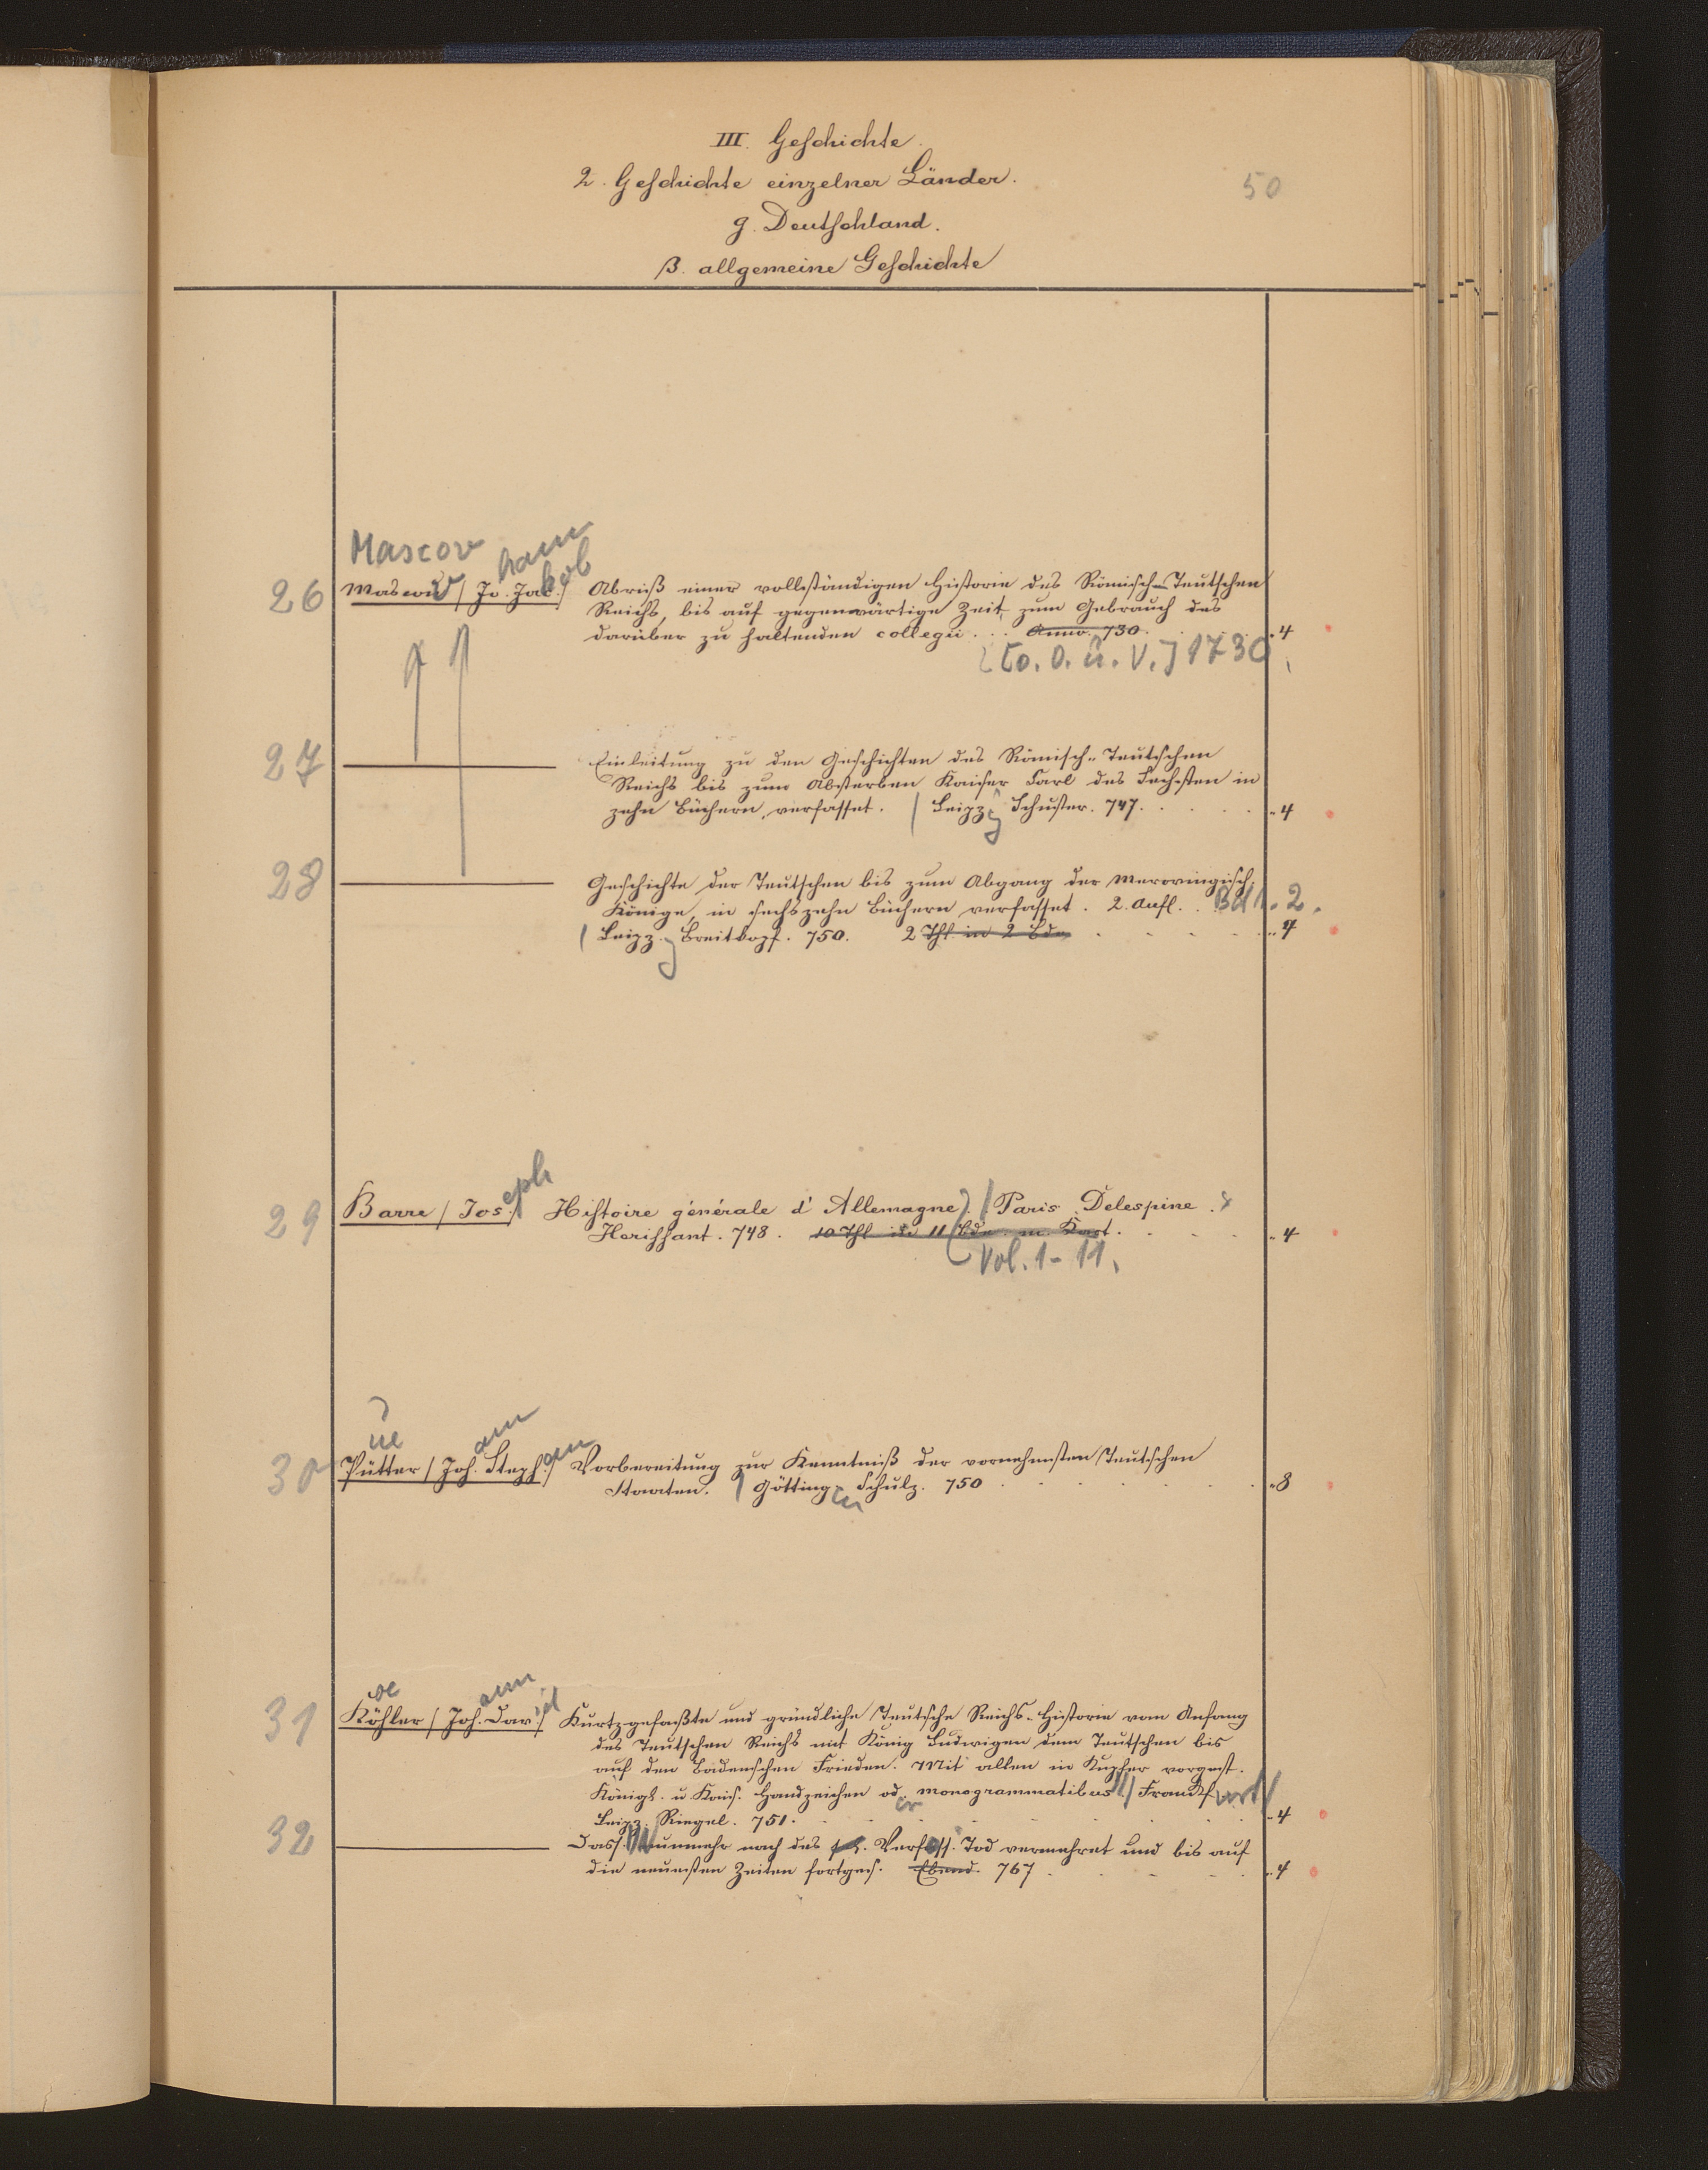 III. Geschichte.
2. Geschichte einzelner Länder.
50
g. Deutschland.
β. allgemeine Geschichte
Mascov
hann
kob
26 Mascov / Jo. Jac. / Abriß einer vollständigen Historie des Römisch-Teutschen
Reichs, bis auf gegenwärtige Zeit, zum Gebrauch des
darüber zu haltenden collegii . . . Anno. 730. „4
[o. O. u. V.] 1730
27 Einleitung zu den Geschichten des Römisch-Teutschen
Reichs bis zum Absterben Kaiser Carl des Sechsten in
zehn Büchern, verfasset. / Leipzg Schuster. 747. „4
28 Geschichte der Teutschen bis zum Abgang der Merovingisch.
Könige, in sechszehn Büchern verfasset. 2. Aufl. . Bd 1. 2.
/ Leipz.g Breitkopf. 750. 2 Thl in 2 Bdn „4
eph
29 Barre / Jos. / Histoire générale d'Allemagne. / Paris Delespine &
Herissant. 748. 10 Thl in 11 Bdn. m. Kart. „4
Vol. 1-11.
ue
ann
an
30 Pütter / Joh. Steph. / Vorbereitung zur Kenntniß der vornehmsten Teutschen
Staaten. / Götting.en Schulz. 750 „8
oe
ann
id
31 Köhler / Joh. Dav. / Kurtzgefaßte und gründliche Teutsche Reichs-Historie vom Anfang
des Teutschen Reichs mit König Ludwigen dem Teutschen bis
auf den Badenschen Frieden. Mit allen in Kupfer vorgest.
Königl. u. Kais. Handzeichen od.er monogrammatibus. // Franckfurt /
Leipz. Riegel. 751. „4
32 Dass. Nunmehr nach des Verfass. Tod vermehret und bis auf
die neuesten Zeiten fortges. Ebend. 767 „4